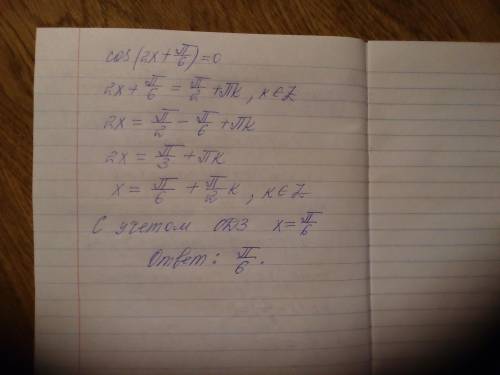 cos(2x+π/6)=0
2x+π/6=π/2+πк, к∈Z
2x=π/2-π/6+πк
2x=π/3+πк
x=π/6+π/2к, к∈Z
С учетом ОДЗ x=π/6
Ответ: π/6.